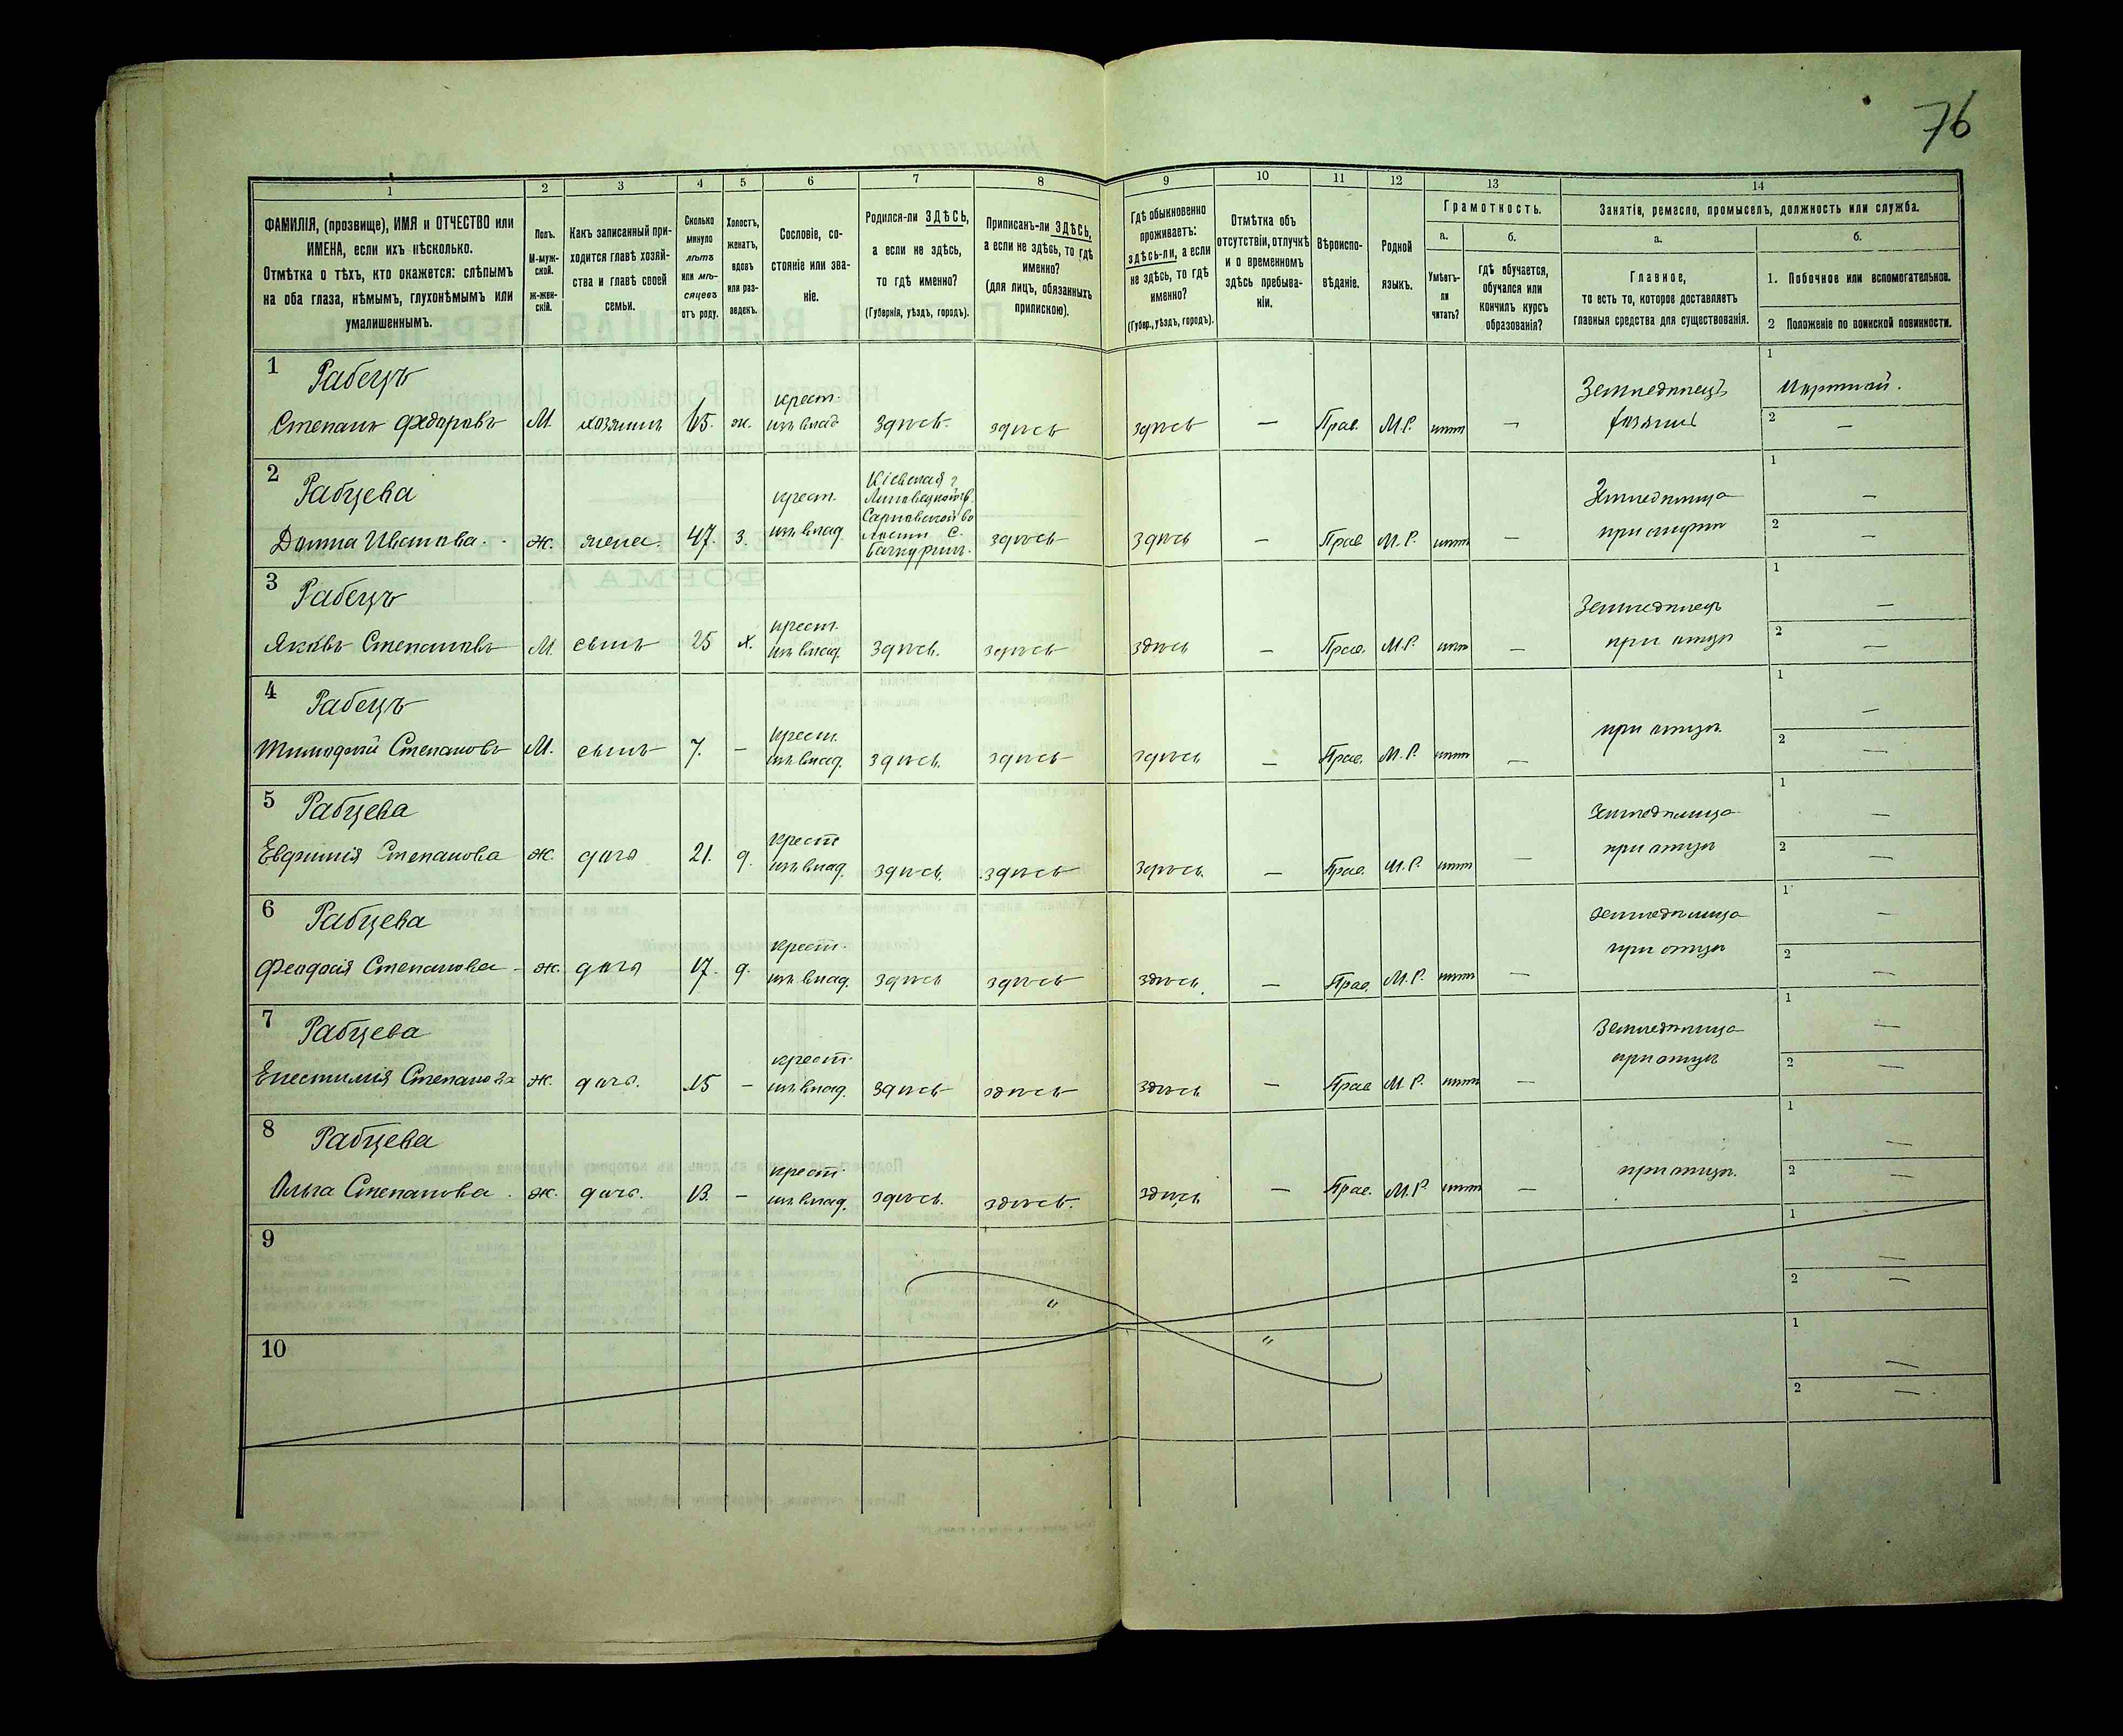 76
1 2 3 4 5 6 7 8 9 10 11 12 13 14
ФАМИЛІЯ, (прозвище), ИМЯ и ОТЧЕСТВО или
ИМЕНА, если ихъ нѣсколько.
Отмѣтка о тѣхъ, кто окажется: слѣпымъ
на оба глаза, нѣмымъ, глухонѣмымъ или
умалишеннымъ.
Полъ.
М-муж-
ской.
ж-жен-
скій.
Какъ записанный при-
ходится главѣ хозяй-
ства и главѣ своей
семьи.
Сколько
минуло
лѣтъ
или мѣ-
сяцевъ
отъ роду.
Холостъ,
женатъ,
вдовъ
или раз-
веденъ.
Сословіе, со-
стояніе или зва-
ніе.
Родился-ли ЗДѢСЬ,
а если не здѣсь,
то гдѣ именно?
(Губернія, уѣздъ, городъ).
Приписанъ-ли ЗДѢСЬ,
а если не здѣсь, то гдѣ
именно?
(для лицъ, обязанныхъ
припискою).
Гдѣ обыкновенно
проживаетъ:
здѣсь-ли, а если
не здѣсь, то гдѣ
именно?
(Губер., уѣздъ, городъ).
Отмѣтка объ
отсутствіи, отлучкѣ
и о временномъ
здѣсь пребыва-
ніи.
Вѣроиспо-
вѣданіе.
Родной
языкъ.
Грамотность.
а.
Умѣетъ-
ли
читать?
б.
гдѣ обучается,
обучался или
кончилъ курсъ
образованія?
Занятіе, ремесло, промыселъ, должность или служба.
а.
Главное,
то есть то, которое доставляетъ
главныя средства для существованія.
б.
1. Побочное или вспомогательное.
2 Положеніе по воинской повинности.
1 Рабецъ
Степанъ Федоровъ М. хозяинъ 65. ж. крест. изъ влад здѣсь. здѣсь здѣсь — Прав. М.Р. нѣтъ — Земледѣлецъ хозяинъ
1 Портной.
2 —
2 Рабцева
Домна Иванова. ж. жена. 47. з. крест. изъ влад Кіевская г
Сарновской во
лости С.
здѣсь здѣсь — Прав М.Р. нѣтъ — Земледѣлица при мужѣ
1 —
2 —
3 Рабецъ
Яковъ Степановъ М. сынъ 25 х. крест. изъ влад. здѣсь. здѣсь здѣсь — Прав. М.Р. нѣтъ — Земледѣлецъ при отцѣ
1 —
2 —
4 Рабецъ
Тимофей Степановъ М. сынъ 7. — крест. изъ влад. здѣсь. здѣсь здѣсь — Прав. М.Р. нѣтъ — при отцѣ.
1 —
2 —
5 Рабцева
Евфимія Степанова ж. дочь 21. д. крест изъ влад. здѣсь. здѣсь здѣсь. — Прав. М.Р. нѣтъ — земледѣлица при отцѣ
1 —
2 —
6 Рабцева
Феодосія Степанова ж. дочь 17. д. крест. изъ влад. здѣсь здѣсь здѣсь. — Прав. М.Р. нѣтъ — земледѣлица при отцѣ
1 —
2 —
7 Рабцева
Степанова ж. дочь. 15 — крест. изъ влад. здѣсь здѣсь здѣсь — Прав М.Р. нѣтъ — Земледѣлица при отцѣ
1 —
2 —
8 Рабцева
Ольга Степанова. ж. дочь. 13. — крест. изъ влад. здѣсь. здѣсь. здѣсь — Прав. М.Р. нѣтъ — при отцѣ.
1 —
2 —
9
1 —
2 —
10
1 —
2 —